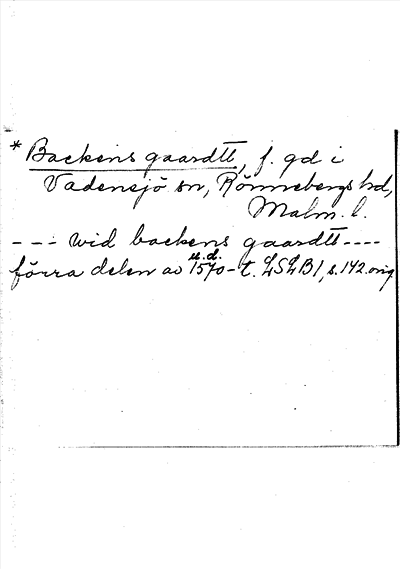 * Backens gaardtt, f. gd i
Vadensjö sn, Rönnebergs hd,
Malm. l.
--- wid backens gaardtt ----
u.d.
förra delen av 1570-t. LSLB1, s. 142. orig